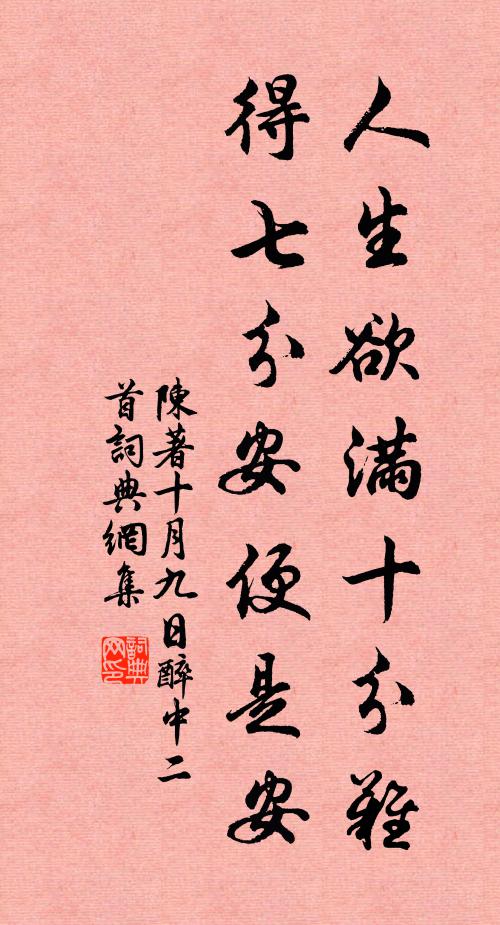 人生欲滿十分難
得七分安便是安
陳著十月九日醉中二
首詞典網集
詞典网印